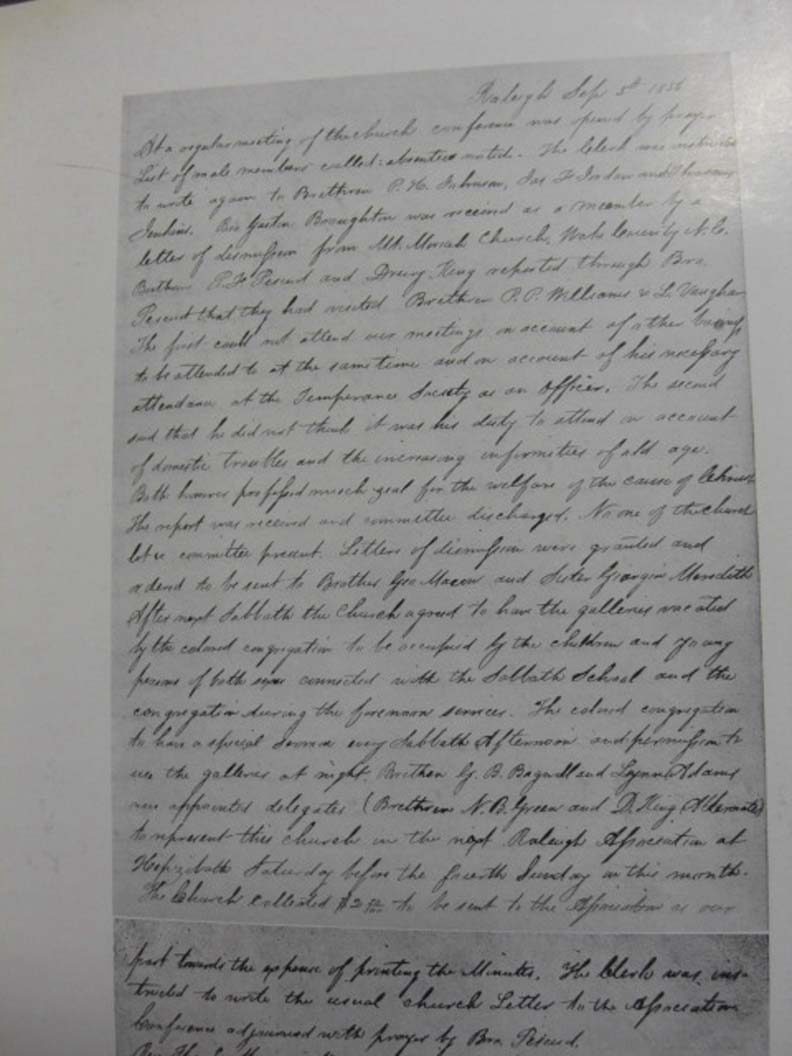 Raleigh Sep 5th 1856
At a regular meeting of the church conference was opened by prayer
List of male members called: absentees noted. The Clerk was instructed
to write again to Brethren P. H. Johnson, Jas F Jordan and Thomas
Jenkins. Bro Gaston Broughton was received as a member by a
letter of dismission from Mt. Moriah Church, Wake County N.C.
Brethren P. F Pescud and Drury King reported through Bro.
Pescud that they had visited Brethren P. P. Williams & L. Vaughan
The first could not attend our meetings on account of other business
to be attended to at the same time and on account of his necessary
attendance at the Temperance Society as an officer. The second
said that he did not think it was his duty to attend on account
of domestic troubles and the increasing infirmities of old age.
Both however professed much zeal for the welfare of the cause of Christ
The report was received and committee discharged. No one of the church
lot committee present. Letters of dismission were granted and
ordered to be sent to Brother Geo Macon and Sister Georgia Meredith
After next Sabbath the Church agreed to have the galleries vacated
by the colored congregation to be occupied by the children and young
persons of both sexes connected with the Sabbath School and the
congregation during the forenoon services. The colored congregation
to have a special sermon every Sabbath Afternoon and permission to
use the galleries at night. Brethren G. B. Bagwell and Lynn Adams
were appointed delegates (Brethren N. B. Green and D. King Alternates)
to represent this church in the next Raleigh Association at
Hepzibath Saturday before the fourth Sunday in this month.
The Church collected $2 to be sent to the Association as our
part towards the expense of printing the Minutes. The Clerk was ins-
tructed to write the usual church Letter to the Association
Conference adjourned with prayer by Bro. Pescud.